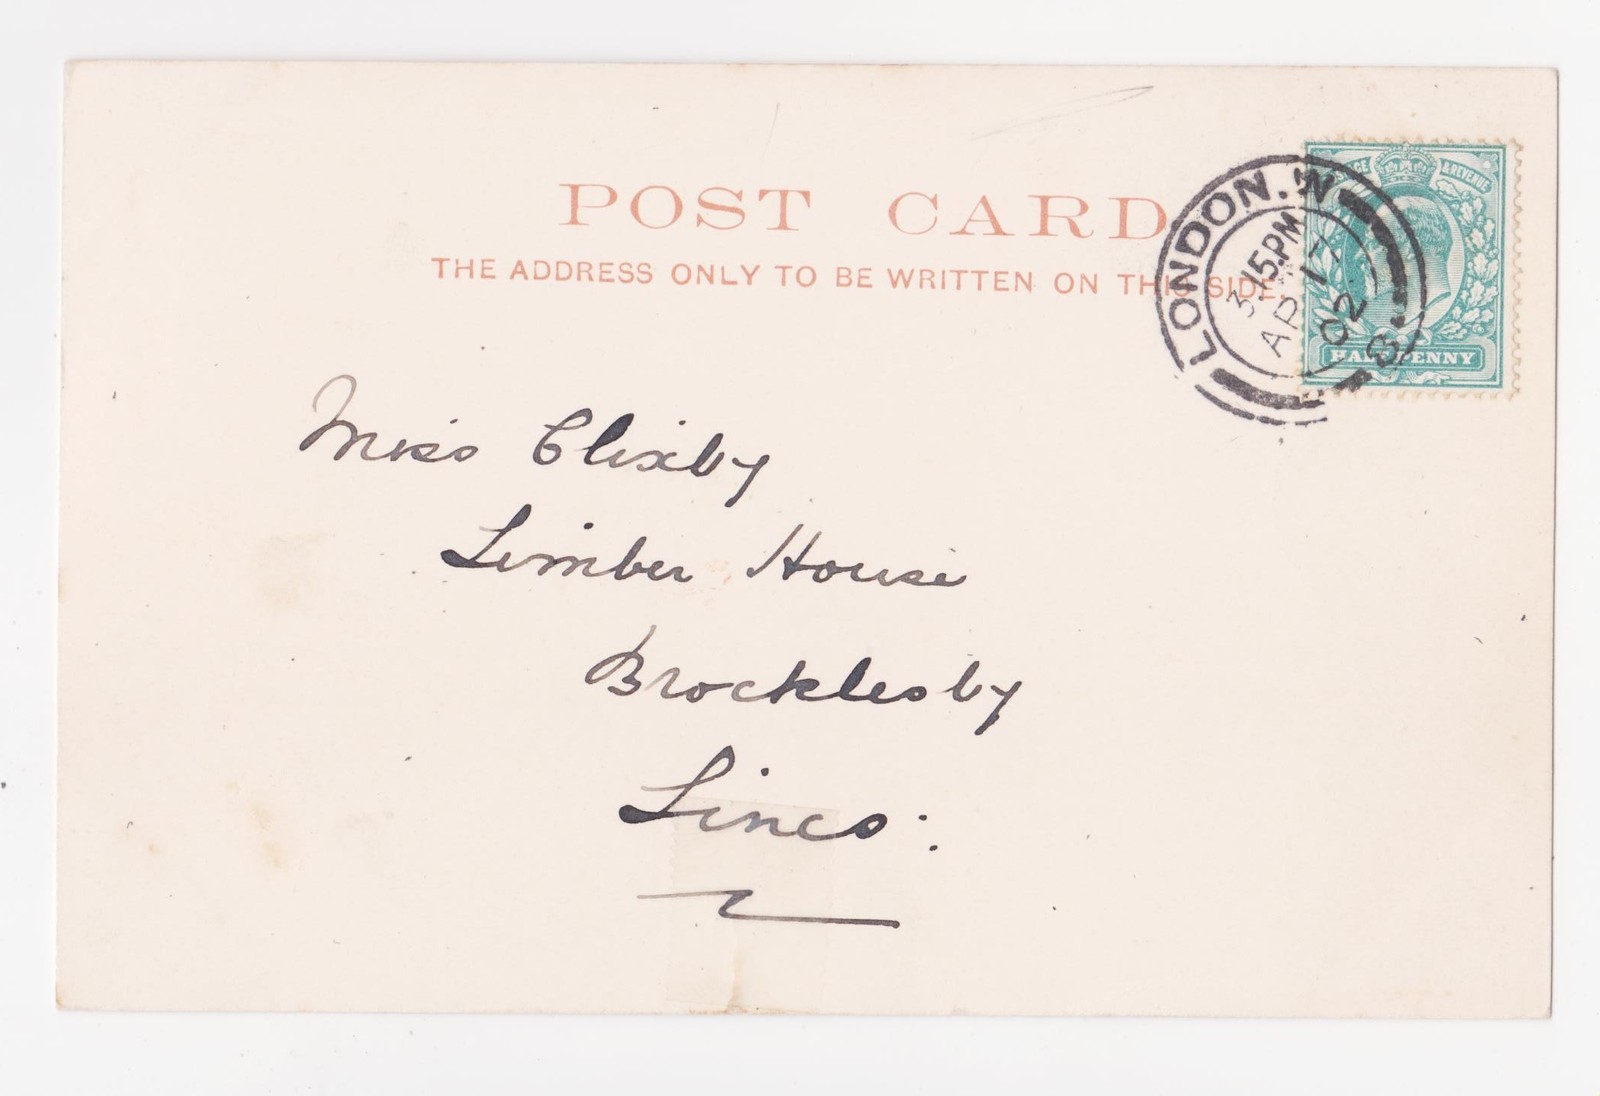 POST CARD
THE ADDRESS ONLY TO BE WRITTEN ON THIS SIDE.
LONDON. N
3.15.PM
AP 17
02
8
& REVENUE
HALFPENNY
Miss Clixby
Limber House
Brocklesby
Lincs: